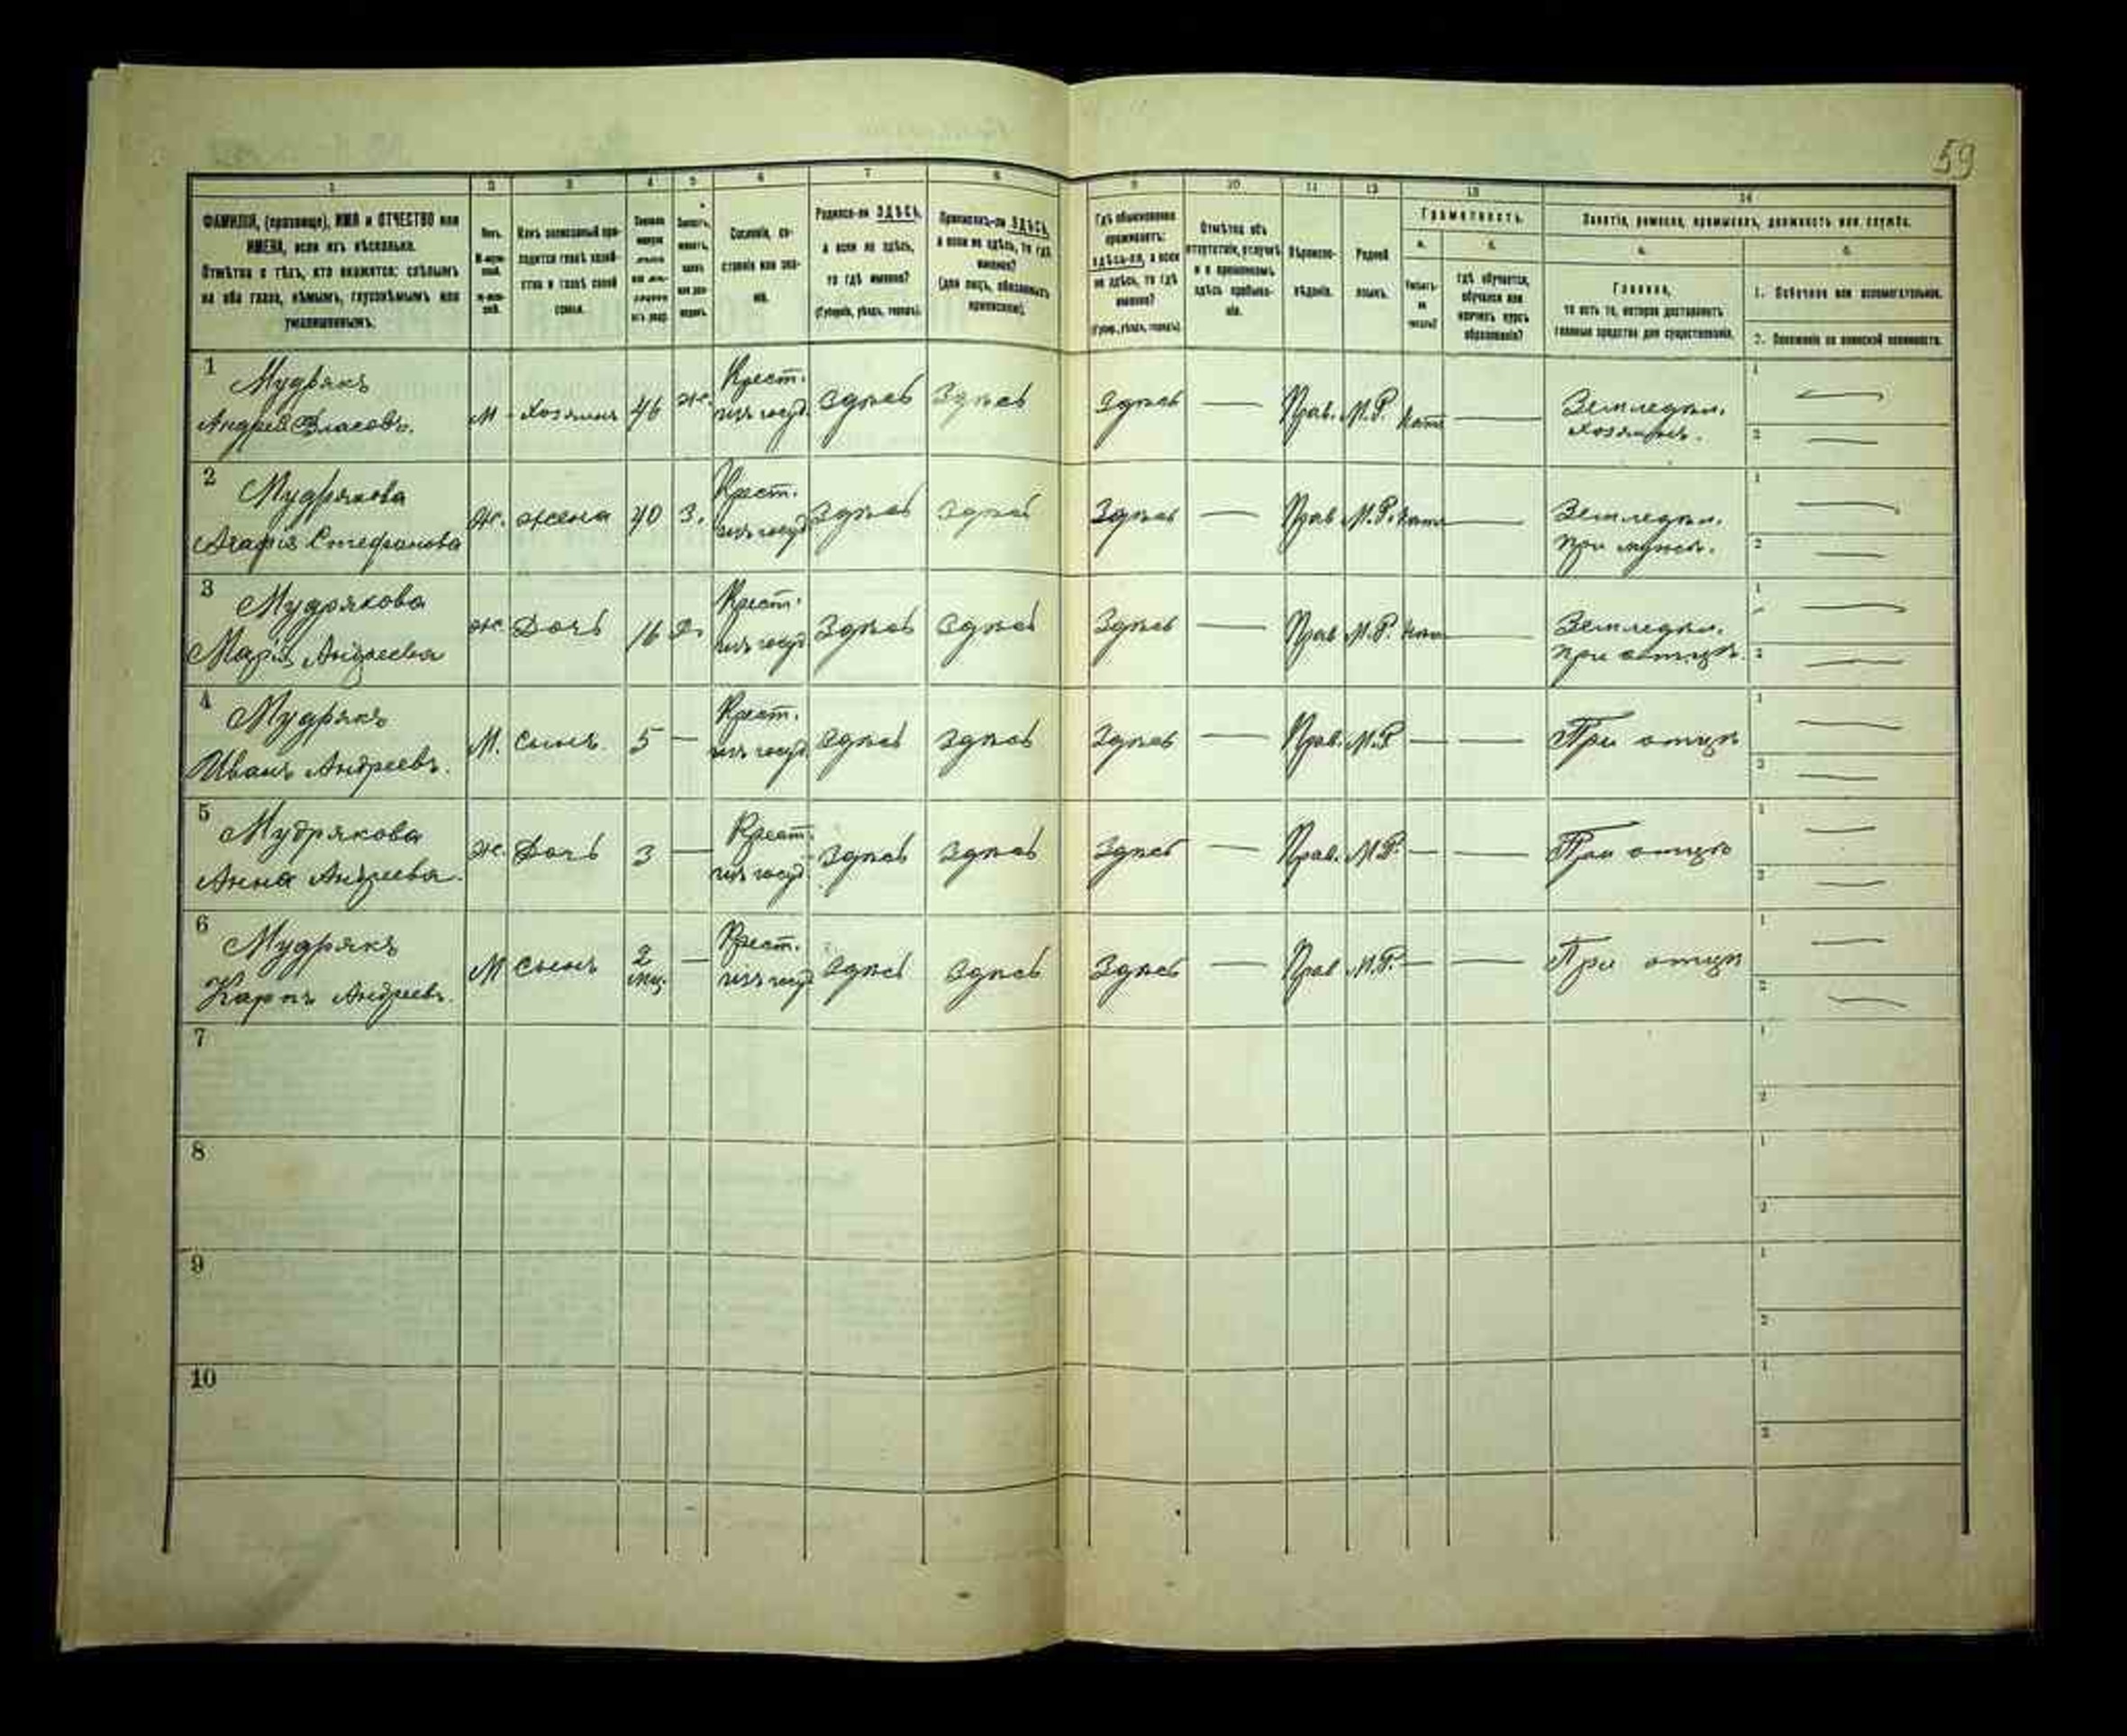 59
1 2 3 4 5 6 7 8 9 10 11 12 13 14
ФАМИЛІЯ, (прозвище), ИМЯ и ОТЧЕСТВО или
ИМЕНА, если ихъ нѣсколько.
Отмѣтка о тѣхъ, кто окажется: слѣпымъ
на оба глаза, нѣмымъ, глухонѣмымъ или
умалишеннымъ.
Полъ.
Какъ записанный при-
ходится главѣ хозяй-
ства и главѣ своей
семьи.
Сословіе, со-
стояніе или зва-
ніе.
Родился-ли ЗДѢСЬ,
а если не здѣсь,
то гдѣ именно?
(Губернія, уѣздъ, городъ).
Приписанъ-ли ЗДѢСЬ,
а если не здѣсь, то гдѣ
именно?
(для лицъ, обязанныхъ
припискою).
Гдѣ обыкновенно
проживаетъ:
здѣсь-ли, а если
не здѣсь, то гдѣ
именно?
(Губер., уѣздъ, городъ).
Отмѣтка объ
отсутствіи, отлучкѣ
и о временномъ
здѣсь пребыва-
ніи.
Вѣроиспо-
вѣданіе.
Родной
языкъ.
Грамотность.
а.
Умѣетъ-
ли
читать?
б.
гдѣ обучается,
обучался или
кончилъ курсъ
образованія?
Занятіе, ремесло, промыселъ, должность или служба.
а.
Главное,
то есть то, которое доставляетъ
главныя средства для существованія.
б.
1. Побочное или вспомогательное.
2. Положеніе по воинской повинности.
1 Мудрякъ
Андрей Власовъ. М Хозяинъ 46 ж. Крест. изъ госуд. Здѣсь Здѣсь Здѣсь — Прав. М.Р. нѣтъ — Земледѣл. Хозяинъ. 1 — 2 —
2 Мудрякова
Агафія Стефанова Ж. жена 40 З. Крест. изъ госуд. Здѣсь Здѣсь Здѣсь — Прав М.Р. нѣтъ — Земледѣл. при мужѣ. 1 — 2 —
3 Мудрякова
Марія Андреева ж. Дочь 16 Д. Крест. изъ госуд. Здѣсь Здѣсь Здѣсь — Прав М.Р. нѣтъ — Земледѣл. при отцѣ. 1 — 2 —
4 Мудрякъ
Иванъ Андреевъ. М. сынъ. 5 — Крест. изъ госуд. Здѣсь Здѣсь Здѣсь — Прав. М.Р — — При отцѣ 1 — 2 —
5 Мудрякова
Анна Андреева. ж. Дочь 3 — Крест. изъ госуд. Здѣсь Здѣсь Здѣсь — Прав. М.Р. — — При отцѣ 1 — 2 —
6 Мудрякъ
Карпъ Андреевъ. М сынъ 2 мц. — Крест. изъ госуд. Здѣсь Здѣсь Здѣсь — Прав М.Р. — — При отцѣ 1 — 2 —
7 1 2
8 1 2
9 1 2
10 1 2